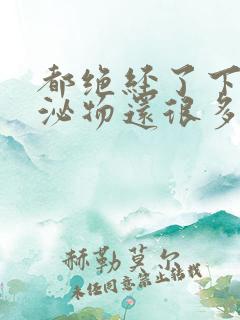 都绝经了下
泌物还很多
赫勒莫尔
未经同意禁止转载